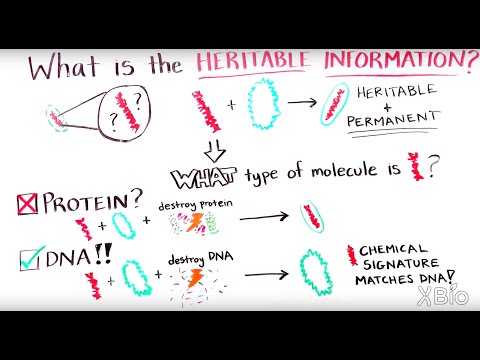 What is the HERITABLE INFORMATION?
? ?
+
HERITABLE
+
PERMANENT
WHAT type of molecule is ?
PROTEIN?
destroy protein
+ +
DNA!!
destroy DNA
+ +
CHEMICAL
SIGNATURE
MATCHES DNA!
XBio